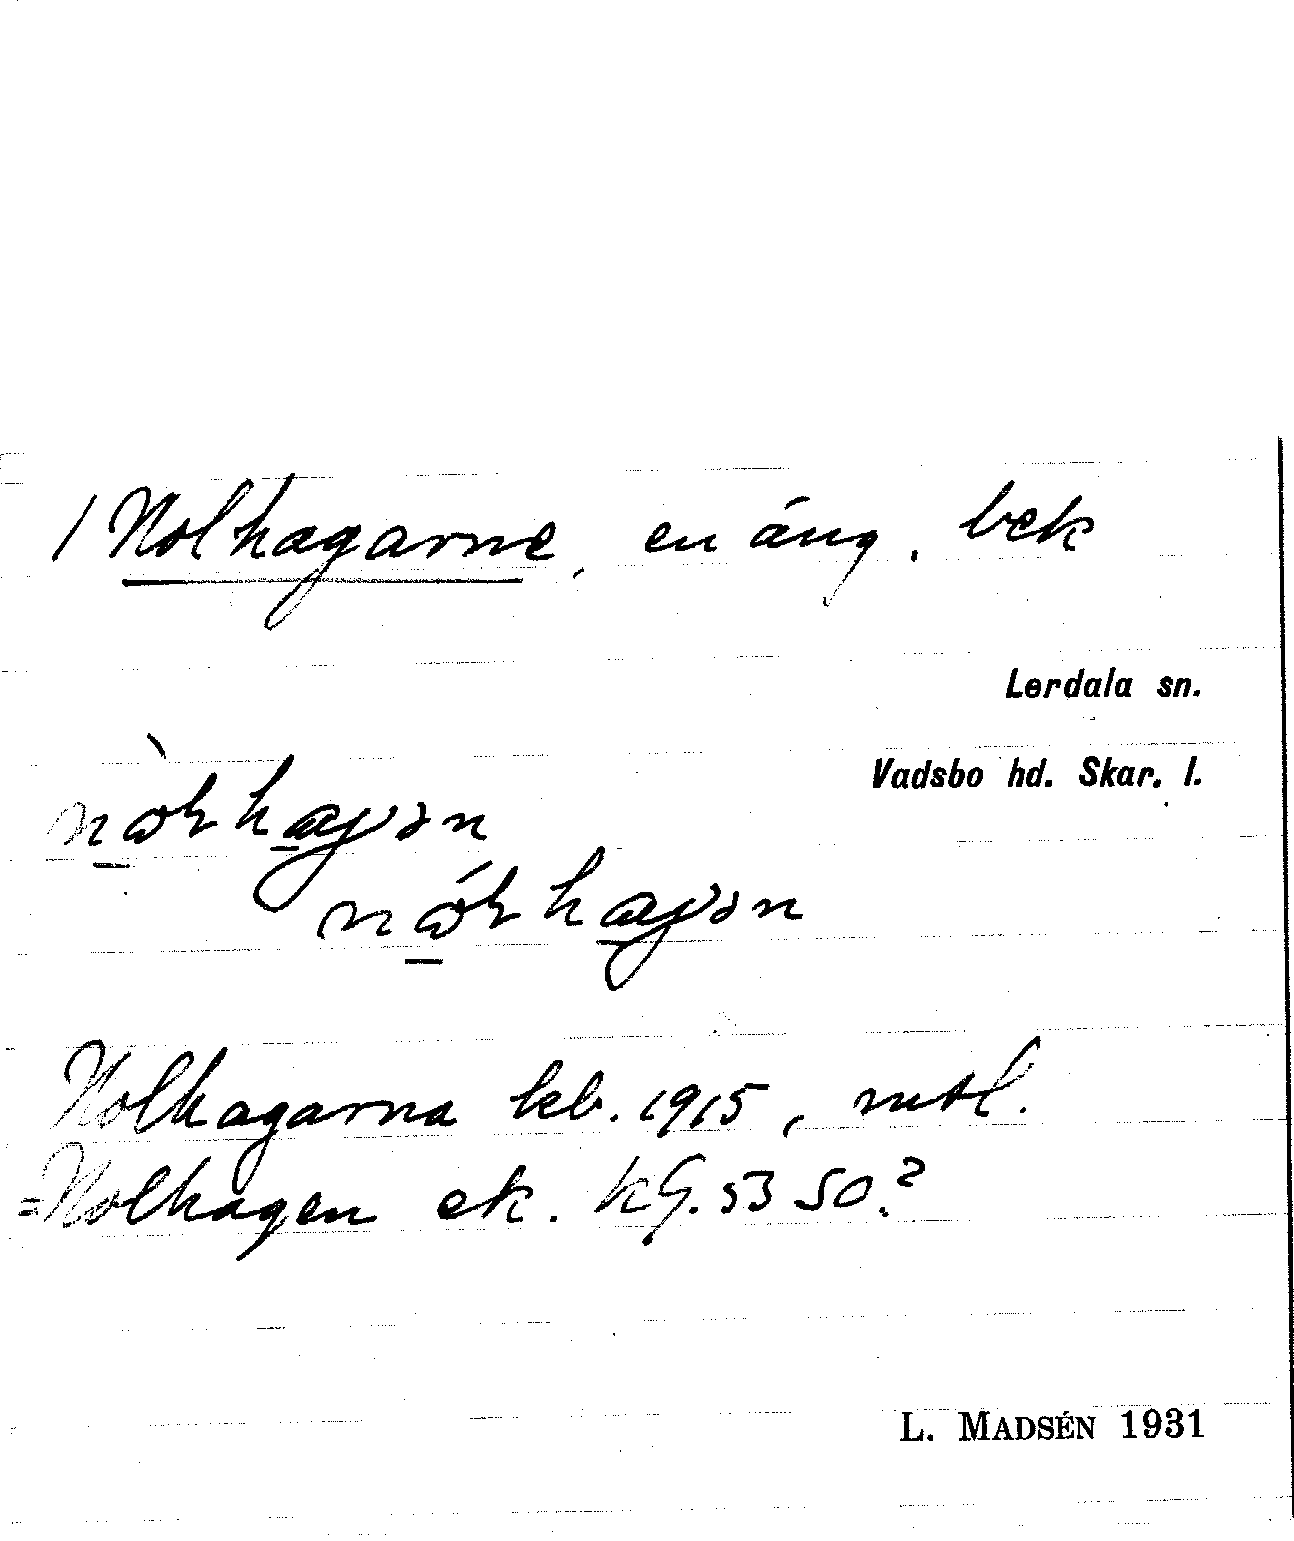 1 Nolhagarne, en äng. bek
Lerdala sn.
Vadsbo hd. Skar. l.
Nolhagarna kb. 1915, mtl.
=Nolhagen ek. KG. 53 50?
L. MADSÉN 1931